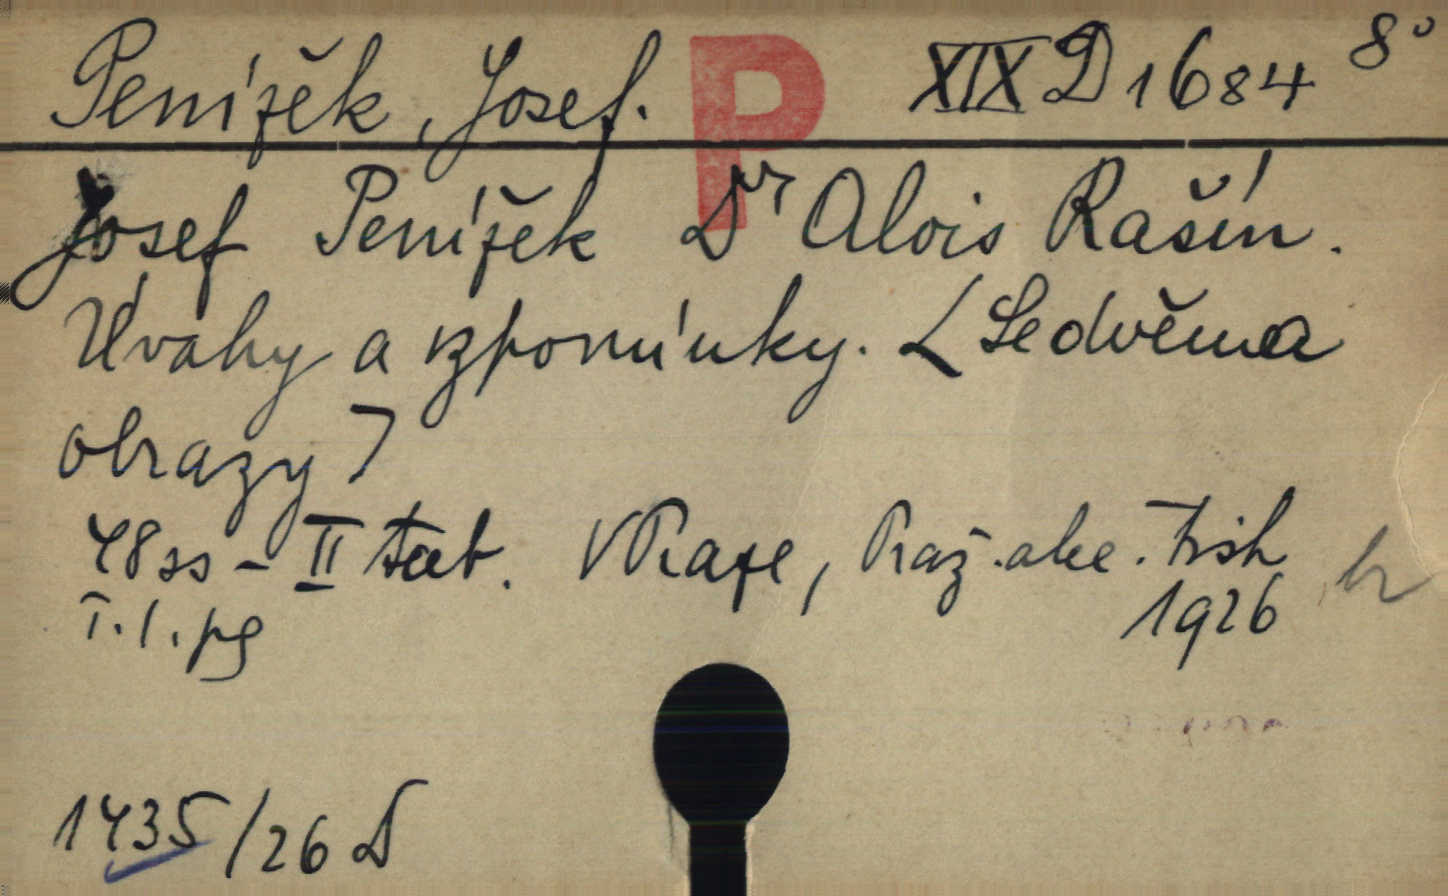 Penížek, Josef. P XIX D 1684 8°
Josef Penížek Dr Alois Rašín.
Úvahy a vzpomínky. [Se dvěma
obrazy]
48 ss - II tab. V Praze, Praž. akc. tisk
I. l. pg 1926
1435/26 D